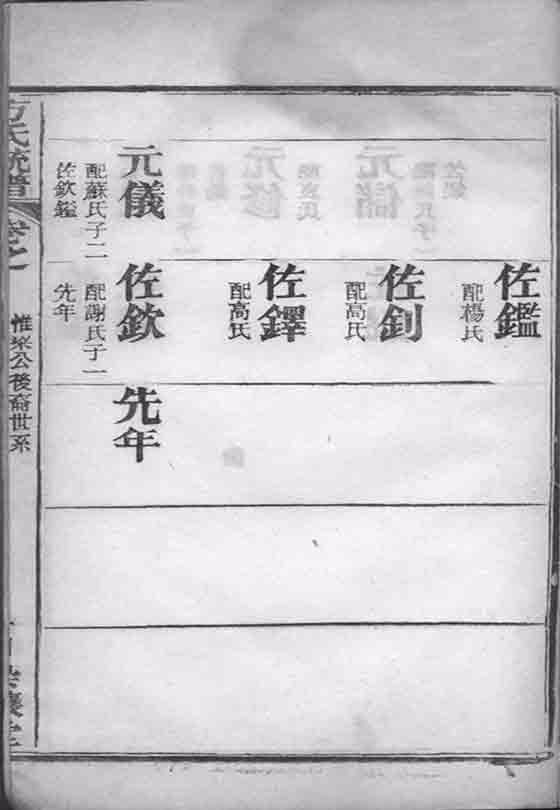 元儀
配蘇氏子二
佐欽鑑
佐鑑
配楊氏
佐釗
配高氏
佐鐸
配高氏
佐欽
配謝氏子一
先年
先年
方氏統譜
公後裔世系